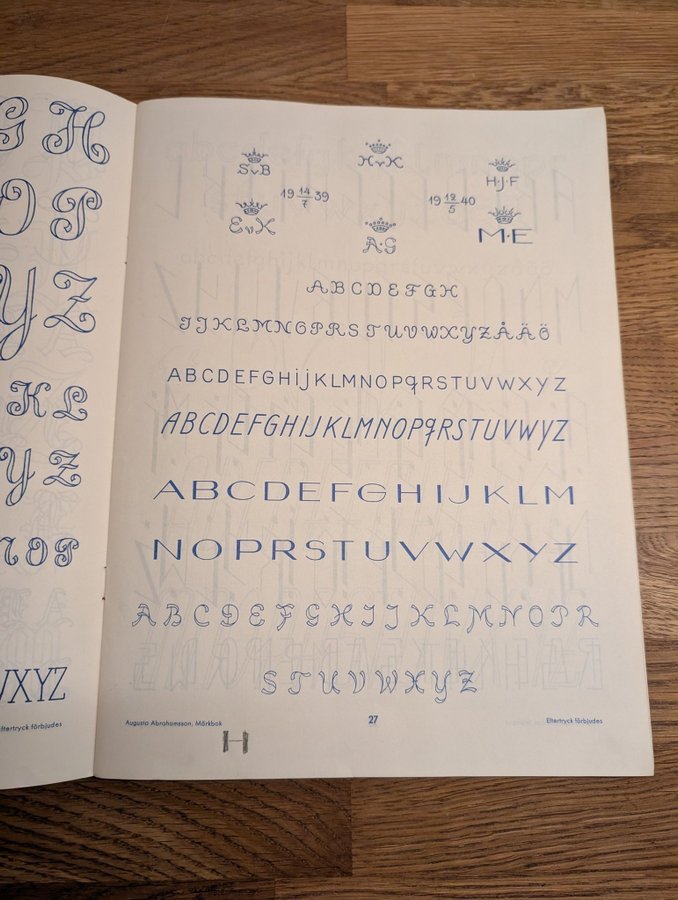 G H
O P
Y Z
K L
Y Z
N O P
VXYZ
Eftertryck förbjudes
SvB
HvK
H·J·F
19 14/7 39
19 12/5 40
EvK
A·G
M·E
ABCDEFGH
IJKLMNOPRSTUVWXYZÅÄÖ
ABCDEFGHijKLMNOPqRSTUVWXyZ
ABCDEFGHIJKLMNOPqRSTUVWyZ
ABCDEFGHIJKLM
NOPRSTUVWXYZ
ABCDEFGHIJKLMNOPR
STUVWXYZ
Augusta Abrahamsson, Märkbok
27
Eftertryck förbjudes
H